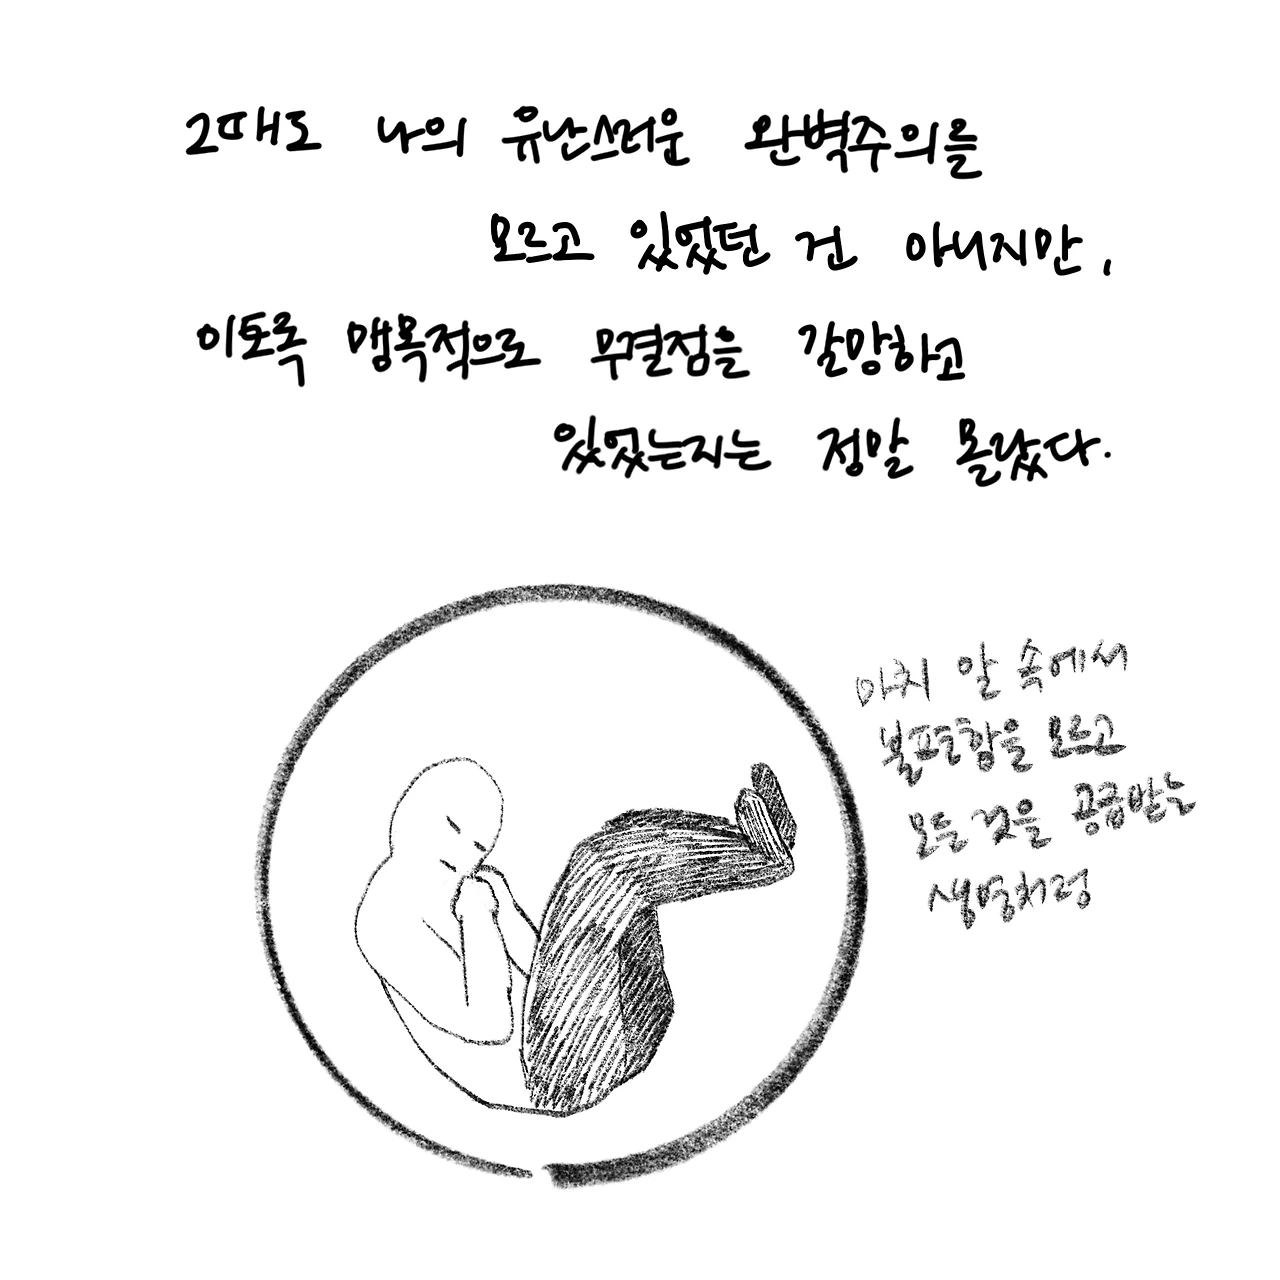 그때도 나의 유난스러운 완벽주의를
모르고 있었던 건 아니지만,
이토록 맹목적으로 무결점을 갈망하고
있었는지는 정말 몰랐다.
마치 알 속에서
불편함을 모르고
모든 것을 공급받는
생명처럼